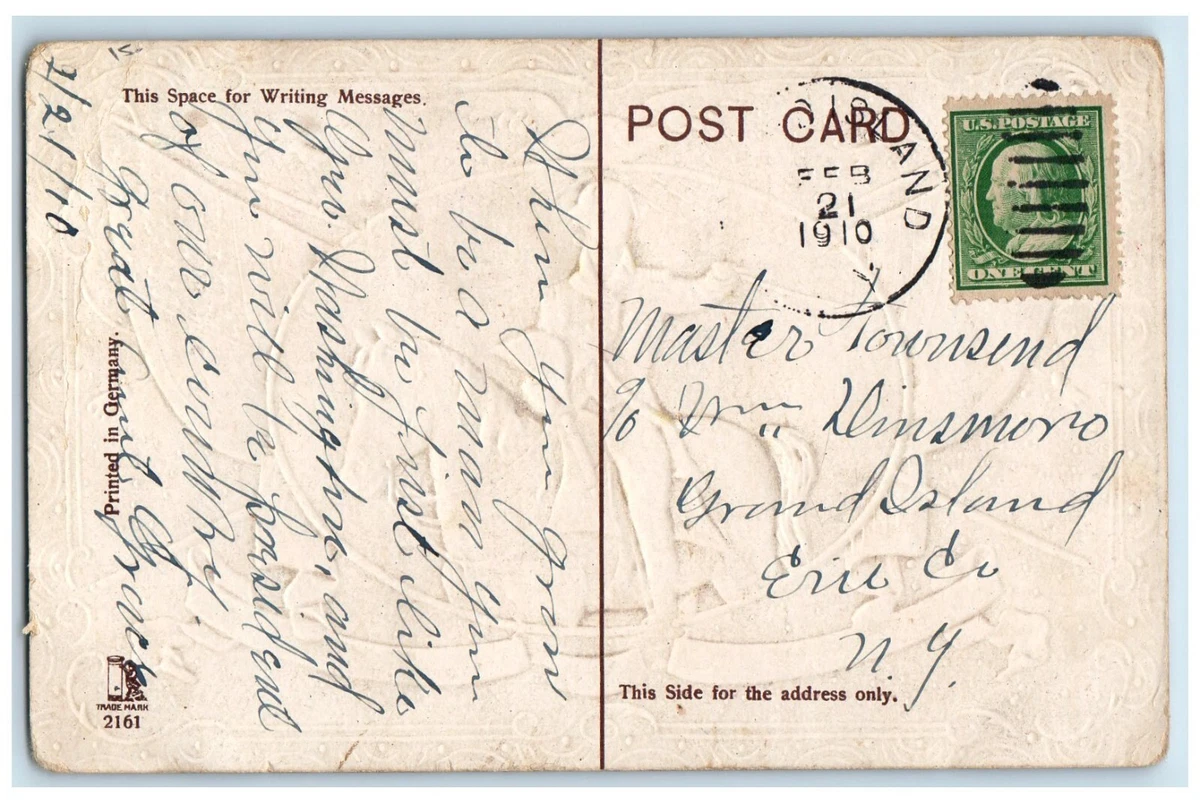 This Space for Writing Messages.
When you grow
to be a man you
must be just like
Geo. Washington, and
you will be pasident
of our country.
Great Aunt
2/21/10
Printed in Germany.
TRADE MARK
2161
POST CARD
FEB
21
1910
N.Y.
U.S. POSTAGE
ONE CENT
Master Townsend
c/o Wm Dinsmore
Grand Island
Erie Co
N. Y.
This Side for the address only.